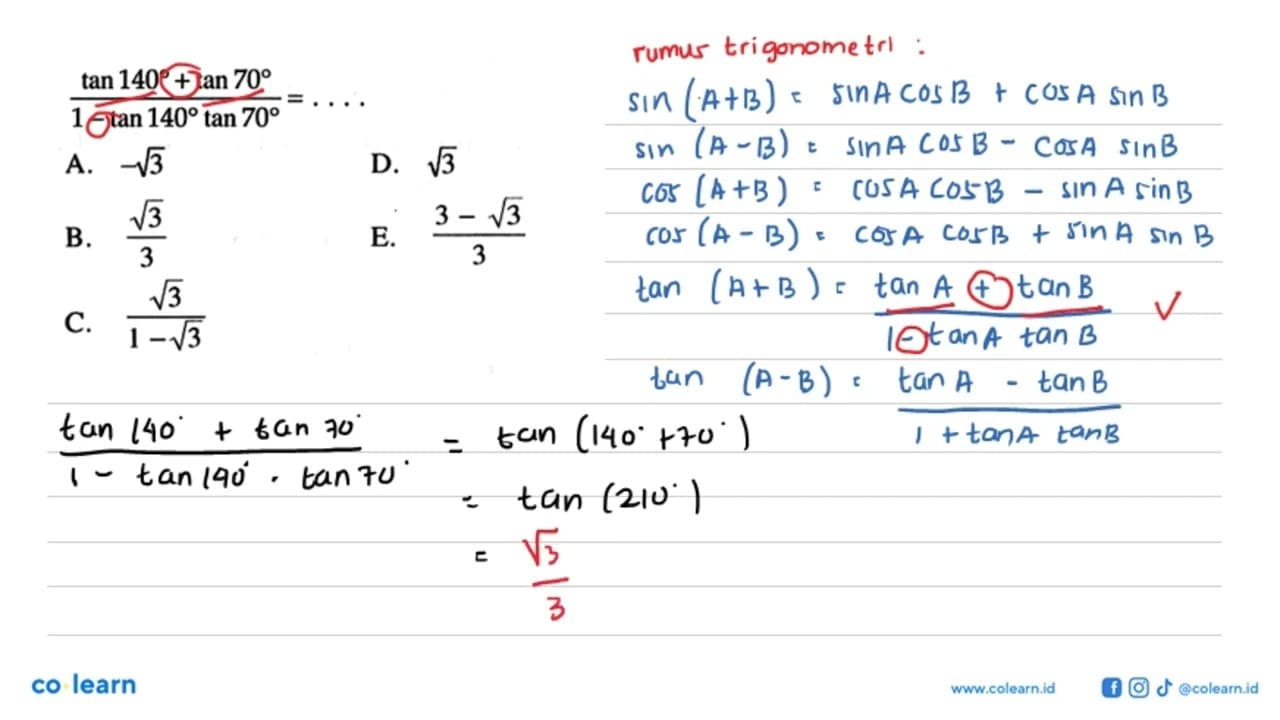 rumus trigonometri :
tan 140° + tan 70°
1 - tan 140° tan 70°
= ....
A. -√3
B. √3/3
C. √3/(1 - √3)
D. √3
E. (3 - √3)/3
sin (A+B) = sin A cos B + cos A sin B
sin (A - B) = sin A cos B - cos A sin B
cos (A+B) = cos A cos B - sin A sin B
cos (A - B) = cos A cos B + sin A sin B
tan (A+B) = tan A + tan B
1 - tan A tan B
tan (A - B) = tan A - tan B
1 + tan A tan B
tan 140° + tan 70°
1 - tan 140° . tan 70°
= tan (140° + 70°)
= tan (210°)
= √3
3
co learn
www.colearn.id
@colearn.id